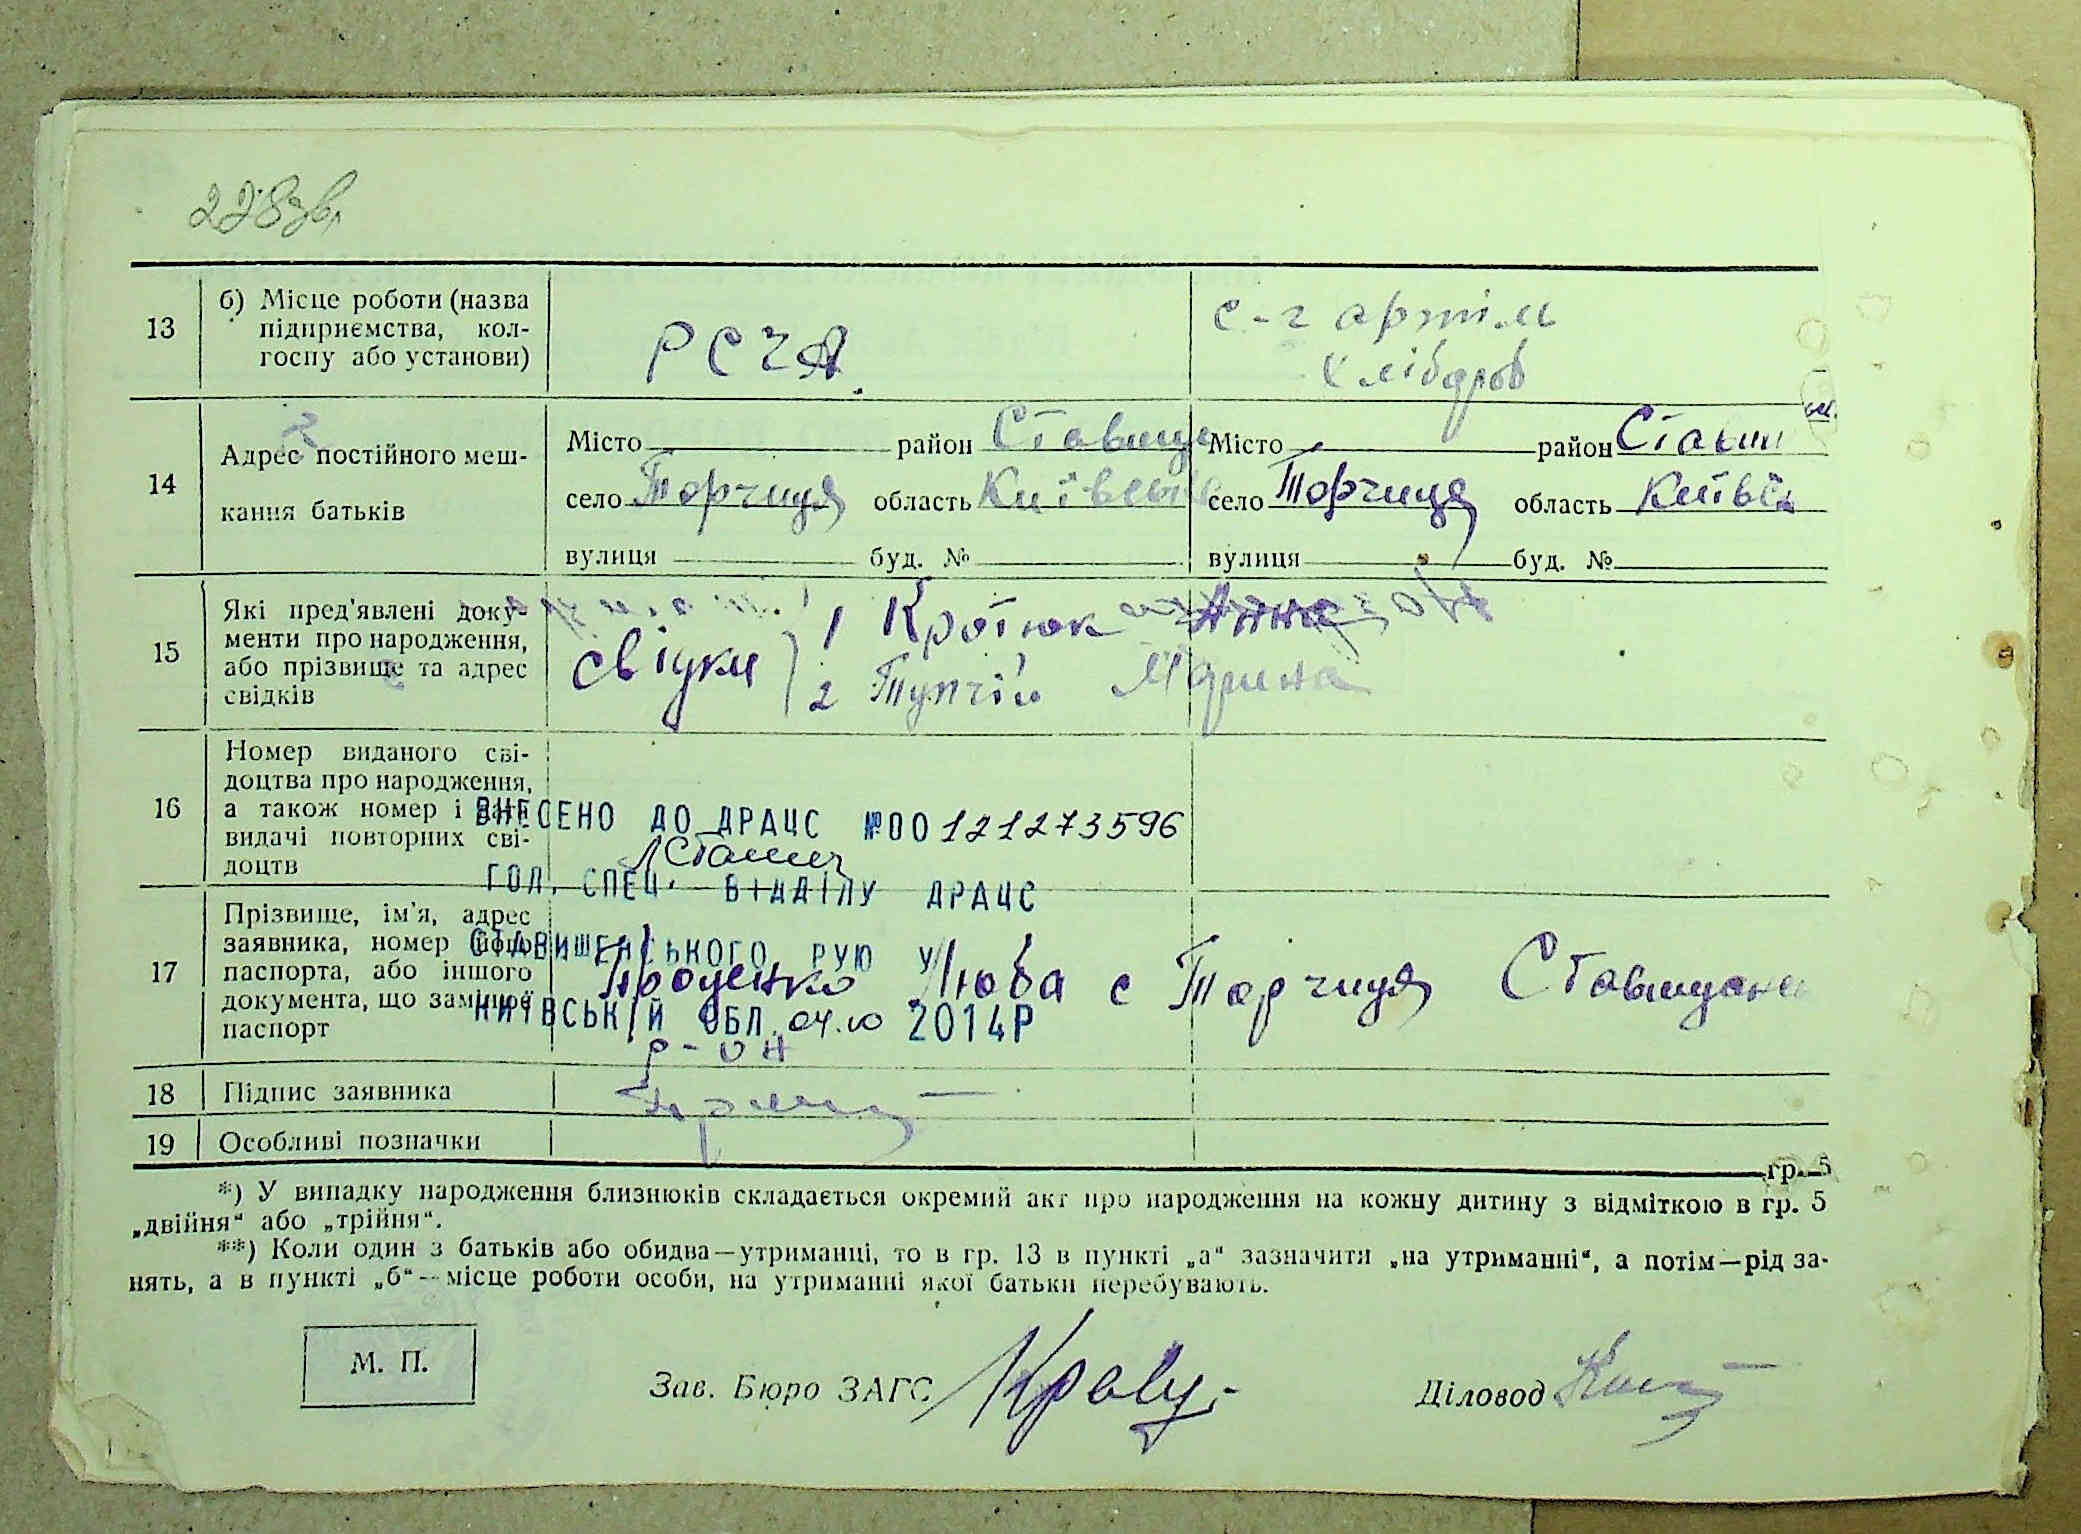 228 зв.
13
б) Місце роботи (назва
підприємства, кол-
госпу або установи)
РСЧА
с-г артіль
Хлібороб
14
Адрес постійного меш-
кання батьків
Місто район Ставище
село Торчиця область Київськ
вулиця буд. №
Місто район Ставищ
село Торчиця область Київсь
вулиця буд. №
15
Які пред'явлені доку-
менти про народження,
або прізвище та адрес
свідків
свідки 1 Кротюк Анна
2 Тупчій Марина
16
Номер виданого сві-
доцтва про народження,
а також номер і дата
видачі повторних сві-
доцтв
ВНЕСЕНО ДО ДРАЦС №00121273596
ГОЛ. СПЕЦ. ВІДДІЛУ ДРАЦС
СТАВИЩЕНСЬКОГО РУЮ У
КИЇВСЬКІЙ ОБЛ. 04.10 2014Р
17
Прізвище, ім'я, адрес
заявника, номер його
паспорта, або іншого
документа, що замінює
паспорт
Проценко Люба с Торчиця Ставищанс
р-он
18 Підпис заявника
19 Особливі позначки
гр. 5
*) У випадку народження близнюків складається окремий акт про народження на кожну дитину з відміткою в гр. 5
„двійня“ або „трійня“.
**) Коли один з батьків або обидва—утриманці, то в гр. 13 в пункті „а“ зазначити „на утриманні“, а потім—рід за-
нять, а в пункті „б“—місце роботи особи, на утриманні якої батьки перебувають.
М. П.
Зав. Бюро ЗАГС
Діловод